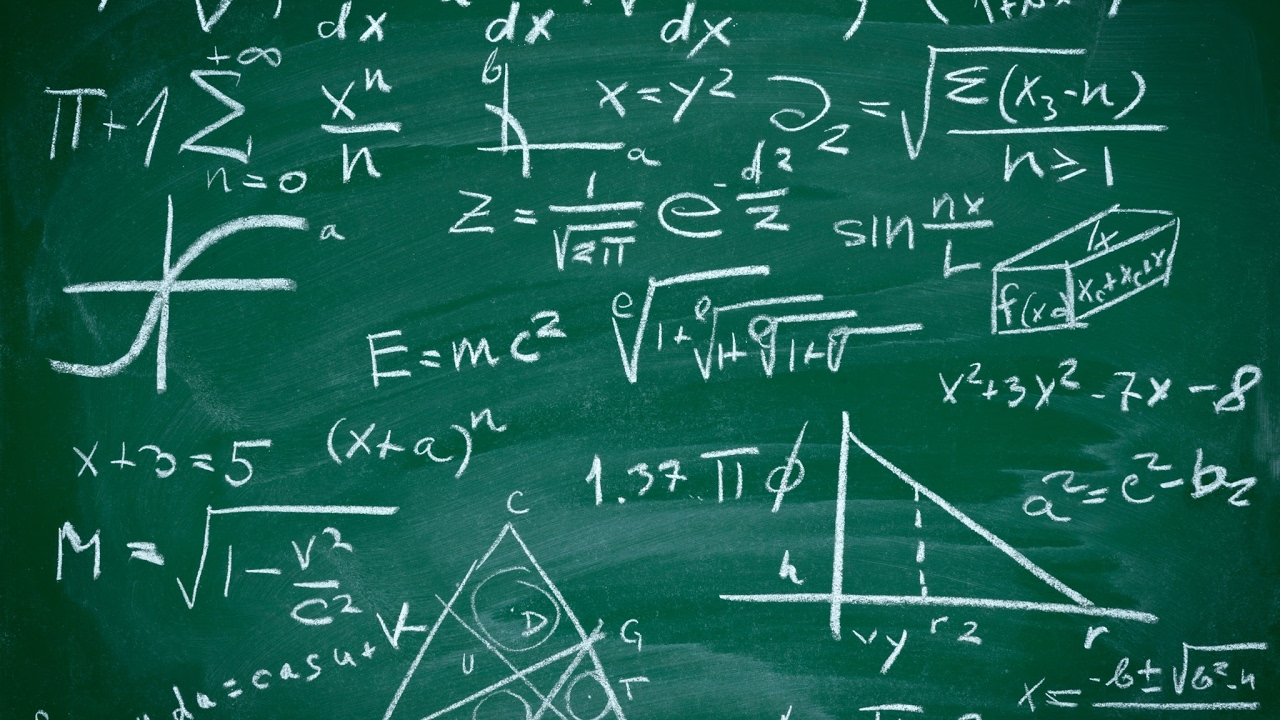 dx dx dx
π+1 +∞ Σ n=0 xⁿ/n
b a
x=y²
∂₂ = √Σ(x₃-n)/n≥1
a
Z = 1/√2π e^-d²/2
sin nx/L
1x
f(x
E=mc²
e√1+e√1+e√1+√
x²+3y²-7x-8
x+3=5
(x+a)ⁿ
1.37 π φ
a²=c²-b₂
M = √1-v²/c²
C
D
G
U
T
h
v y r 2 r
da = cas u+K
x= -b±√b²-4